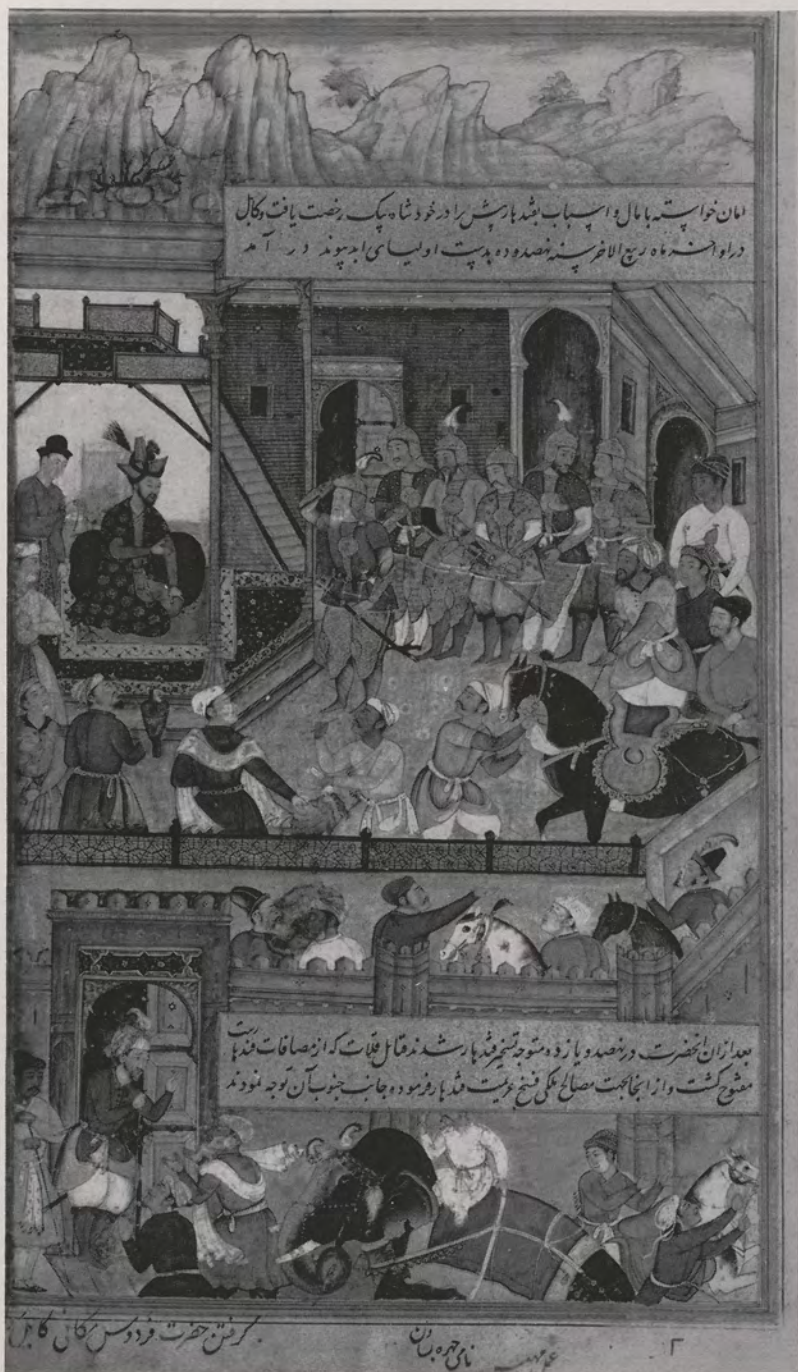 امان خواسته با مال و اسباب بقندهار پیش برادر خود شاه بیک رخصت یافت و کابل
در اواخر ماه ربیع الاخر سنه نهصد و ده بدست اولیای ابد پیوند در آمد
بعد ازان انحضرت در نهصد و یازده متوجه تسخیر قندهار شدند قتال قلات که از مضافات قندهاریت
مفتوح کشت و از انجا بجهت مصالح ملکی فسخ عزیمت قندهار فرموده جانب جنوب آن توجه نمودند
کرفتن حضرت فردوس مکانی کابل
نامی چهره
۲